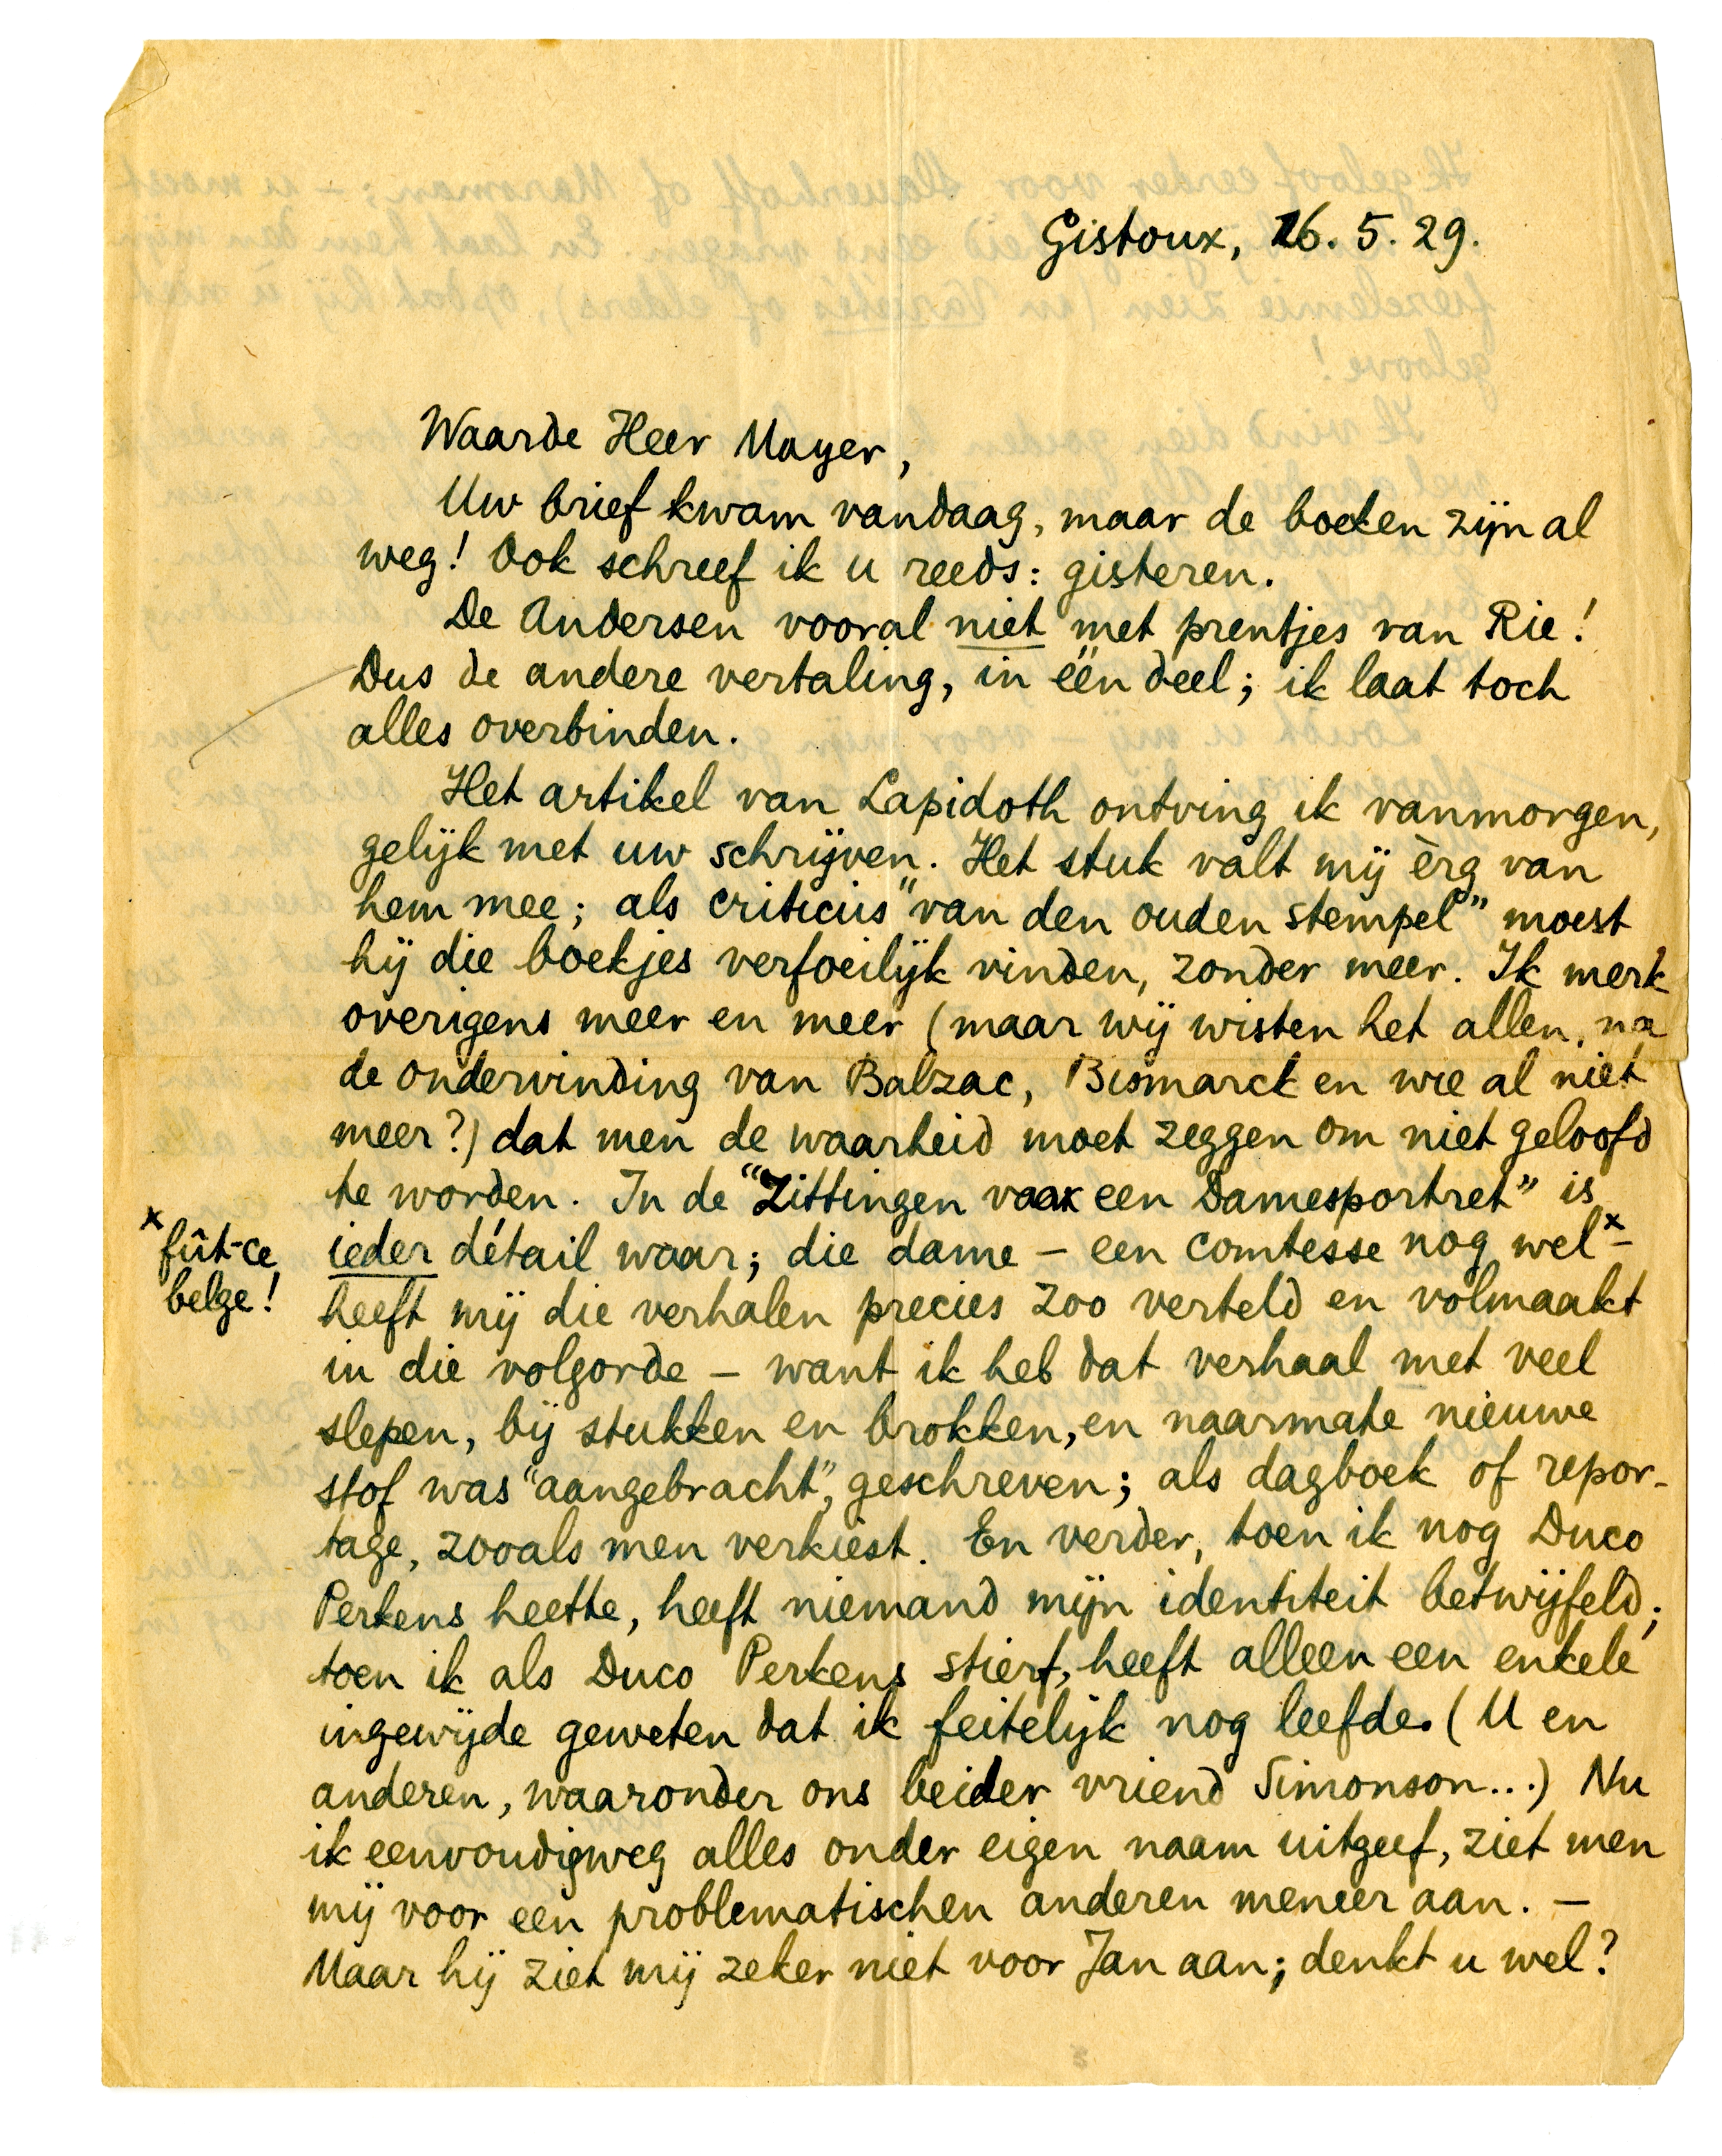 Gistoux, 16. 5. 29.
Waarde Heer Mayer,
Uw brief kwam vandaag, maar de boeken zijn al
weg! Ook schreef ik u reeds: gisteren.
De Andersen vooral niet met prentjes van Rie!
Dus de andere vertaling, in één deel; ik laat toch
alles overbinden.
Het artikel van Lapidoth ontving ik vanmorgen,
gelijk met uw schrijven. Het stuk valt mij èrg van
hem mee; als criticus "van den ouden stempel" moest
hij die boekjes verfoeilijk vinden, zonder meer. Ik merk
overigens meer en meer (maar wij wisten het allen, na
de ondervinding van Balzac, Bismarck en wie al niet
meer?) dat men de waarheid moet zeggen om niet geloofd
te worden. In de "Zittingen voor een Damesportret" is
ieder détail waar; die dame – een comtesse nog wel x –
x fût-ce
belge!
heeft mij die verhalen precies zoo verteld en volmaakt
in die volgorde – want ik heb dat verhaal met veel
slepen, bij stukken en brokken, en naarmate nieuwe
stof was "aangebracht", geschreven; als dagboek of repor-
tage, zooals men verkiest. En verder, toen ik nog Duco
Perkens heette, heeft niemand mijn identiteit betwijfeld;
toen ik als Duco Perkens stierf, heeft alleen een enkele
ingewijde geweten dat ik feitelijk nog leefde. (U en
anderen, waaronder ons beider vriend Simonson...) Nu
ik eenvoudigweg alles onder eigen naam uitgeef, ziet men
mij voor een problematischen anderen meneer aan. –
Maar hij ziet mij zeker niet voor Jan aan; denkt u wel?